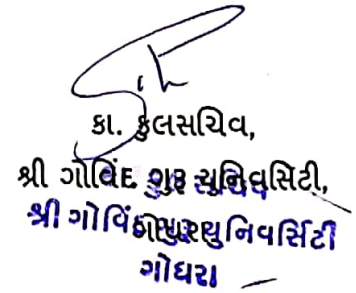 કા. કુલસચિવ,
શ્રી ગોવિંદ ગુરુ યુનિવર્સિટી,
શ્રી ગોવિંદ ગુરુ યુનિવર્સિટી
ગોધરા